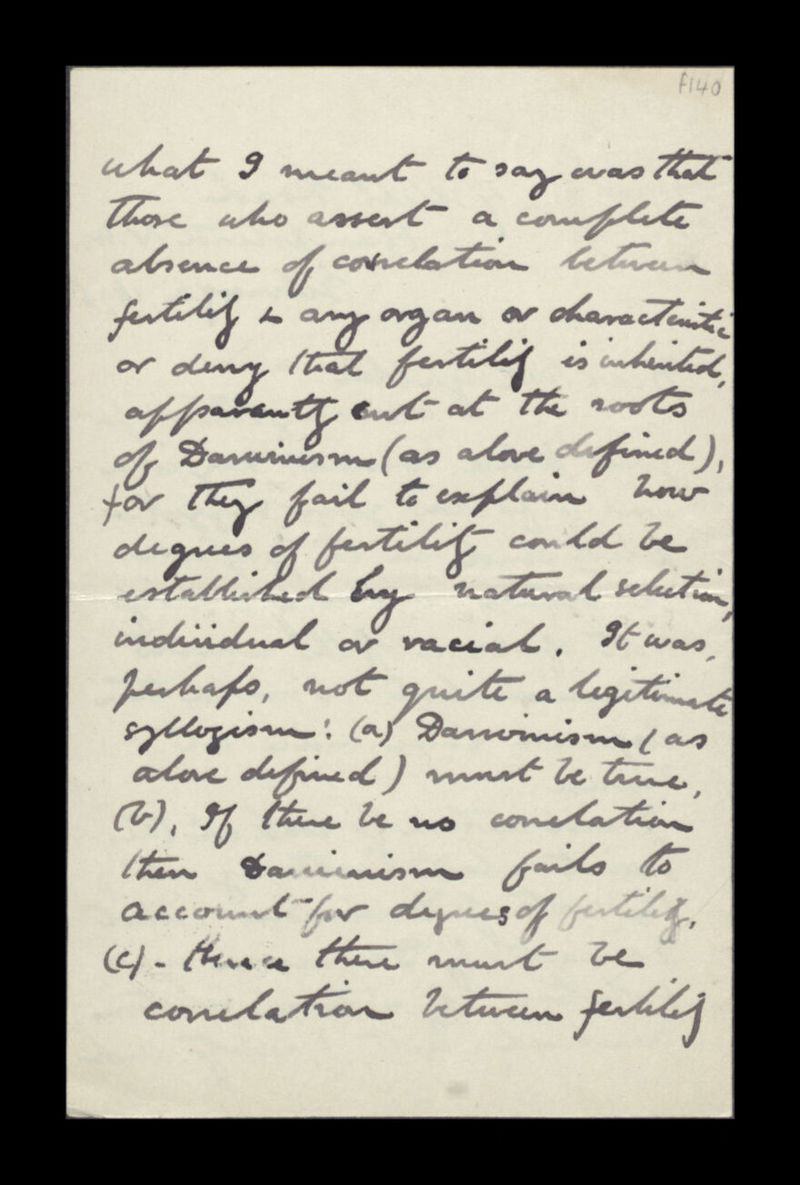 f140
what I meant to say was that
those who assert a complete
absence of correlation between
fertility & any organ or characteristic
or deny that fertility is inherited,
apparently cut at the roots
of Darwinism (as above defined),
for they fail to explain how
degrees of fertility could be
established by natural selection,
individual or racial. It was,
perhaps, not quite a legitimate
syllogism: (a) Darwinism (as
above defined) must be true,
(b), If there be no correlation
then Darwinism fails to
account for degrees of fertility.
(c) - Hence there must be
correlation between fertility